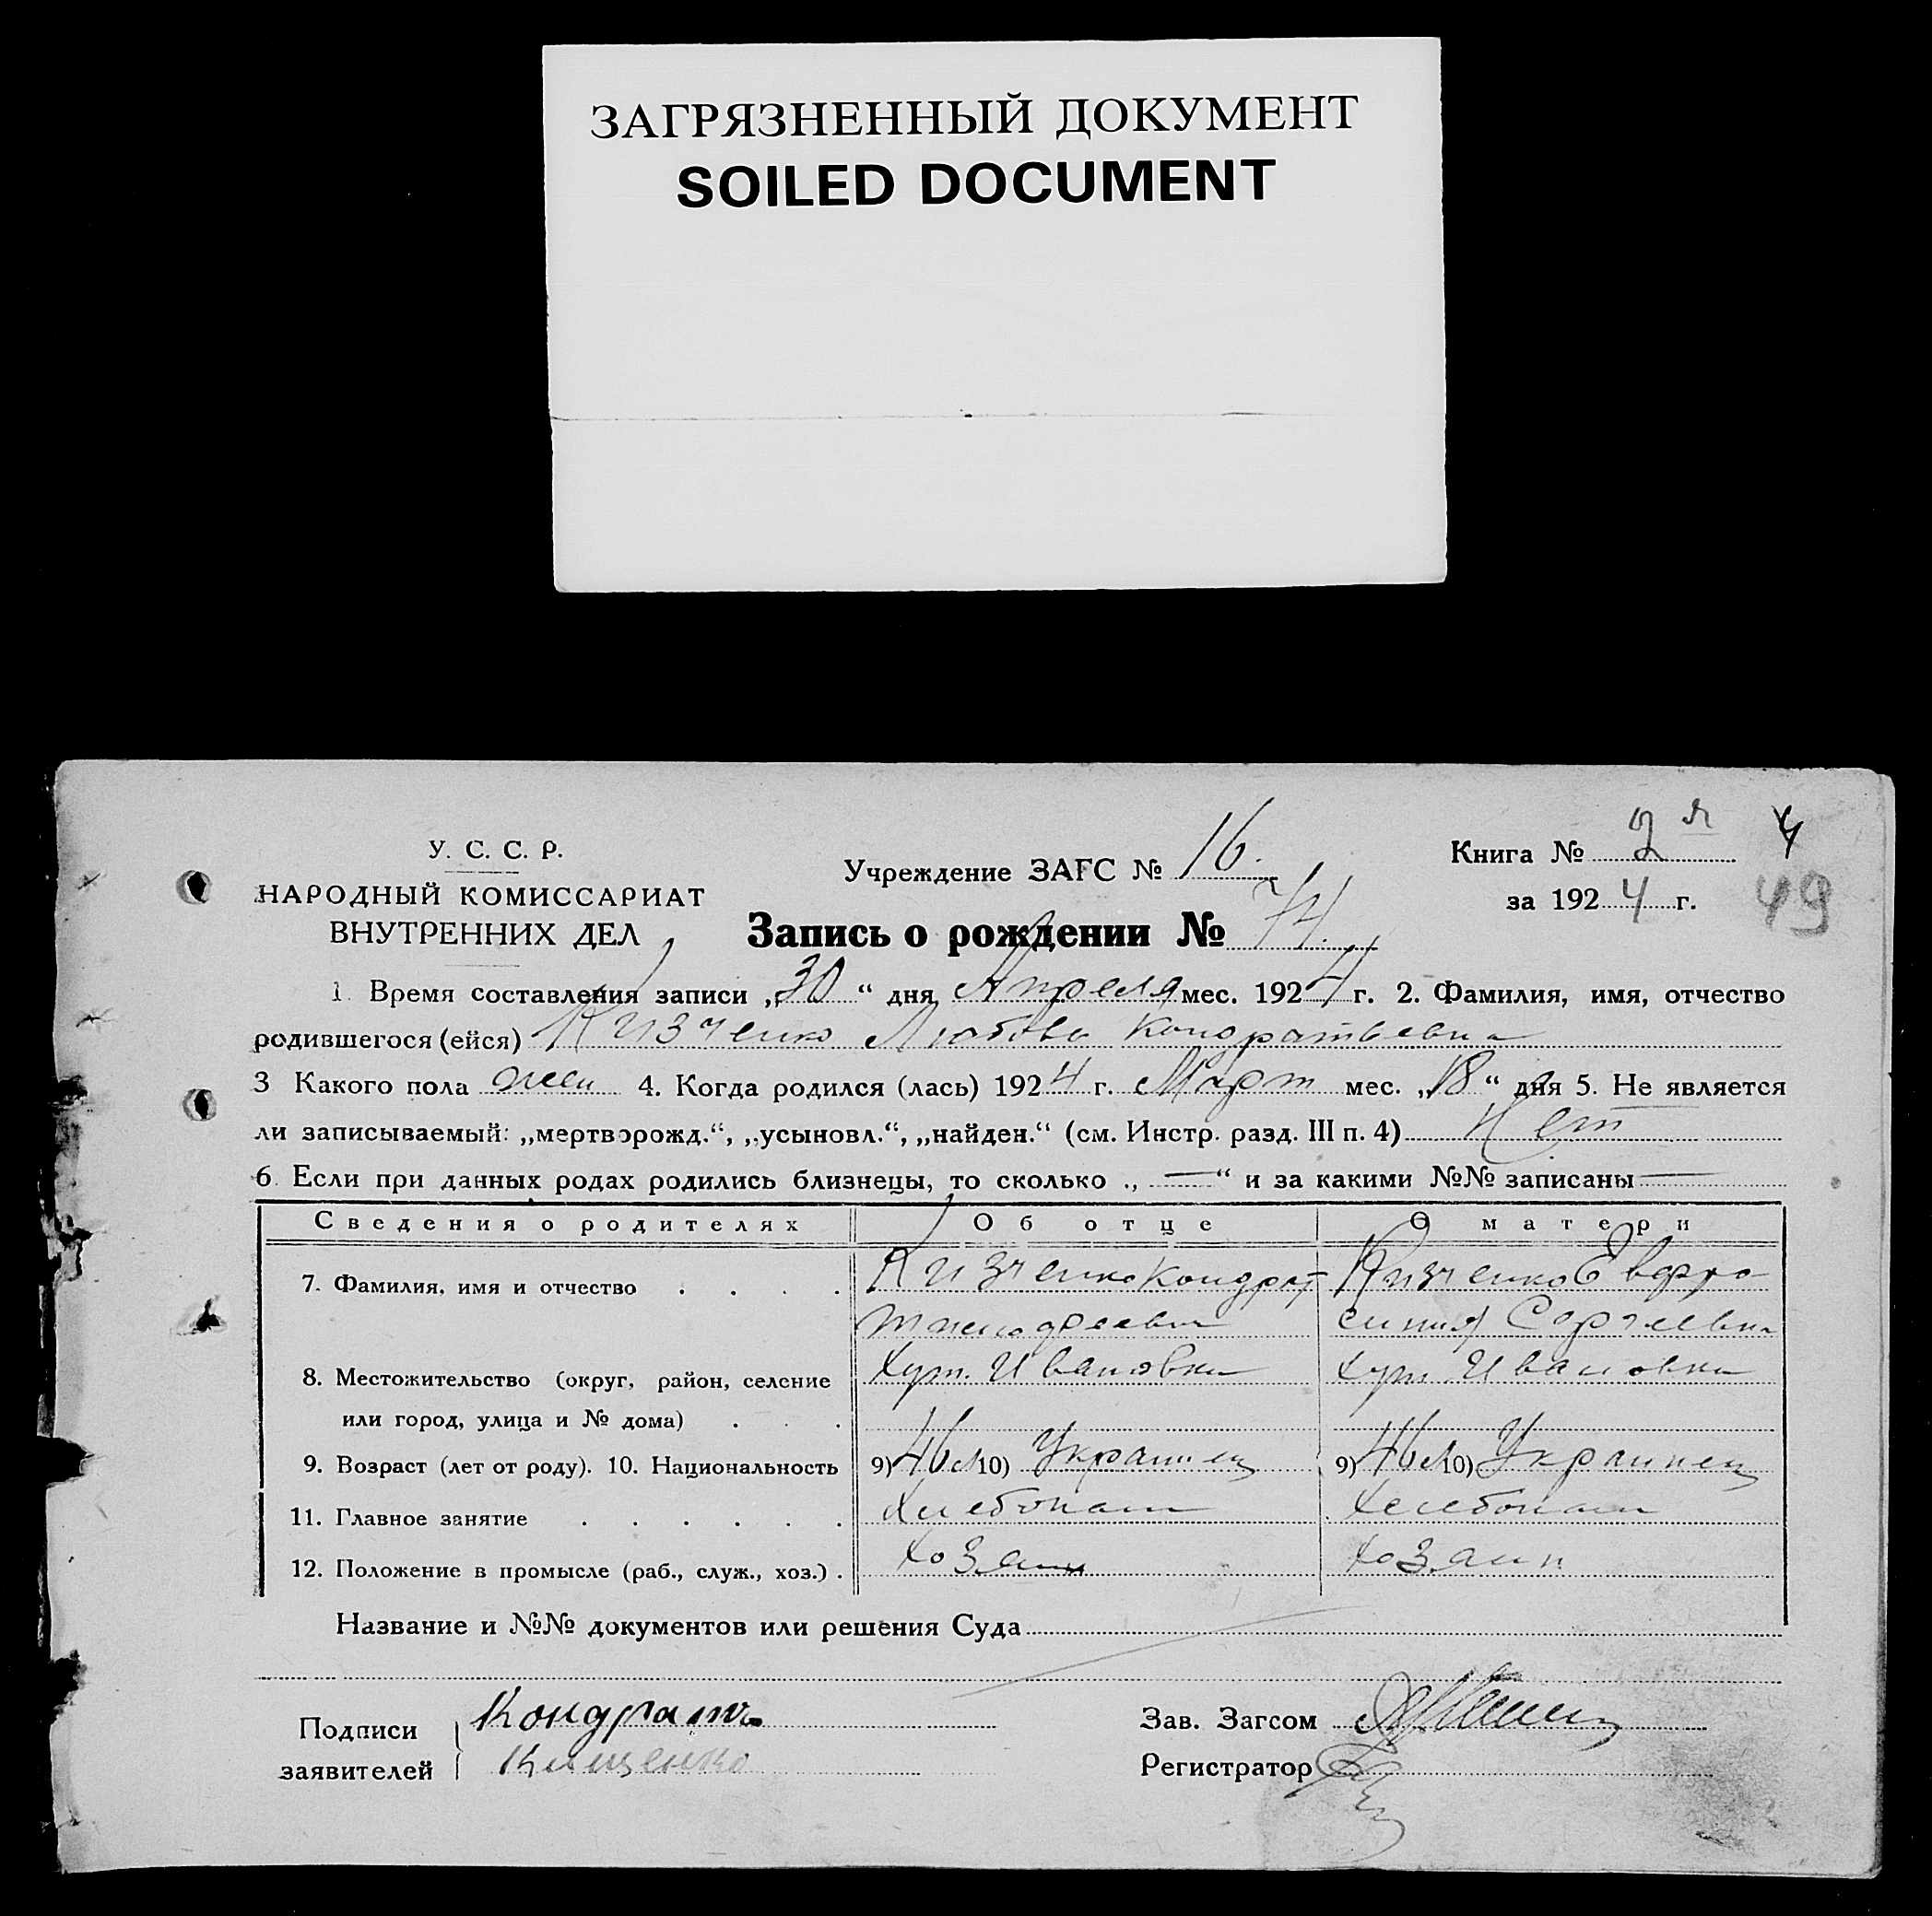 ЗАГРЯЗНЕННЫЙ ДОКУМЕНТ
SOILED DOCUMENT
У. С. С. Р.
НАРОДНЫЙ КОМИССАРИАТ
ВНУТРЕННИХ ДЕЛ
Учреждение ЗАГС № 16.
Книга № 2я 4
за 1924 г. 49
Запись о рождении № 74.
1. Время составления записи „30“ дня Апреля мес. 1924 г. 2. Фамилия, имя, отчество
родившегося (ейся) Кизченко Любовь Кондратьевна
3 Какого пола жен 4. Когда родился (лась) 1924 г. Март мес. „18“ дня 5. Не является
ли записываемый: „мертворожд.“, „усыновл.“, „найден.“ (см. Инстр. разд. III п. 4) Нет
6. Если при данных родах родились близнецы, то сколько „ — “ и за какими №№ записаны —
Сведения о родителях Об отце О матери
7. Фамилия, имя и отчество Кизченко Кондрат Кизченко Евфро-
синия Сергеевна
8. Местожительство (округ, район, селение хут. Ивановка хут. Ивановка
или город, улица и № дома)
9. Возраст (лет от роду). 10. Национальность 9) 46 л 10) Украинец 9) 46 л 10) Украинец
11. Главное занятие Хлебопаш Хлебопаш
12. Положение в промысле (раб., служ., хоз.) хозаин хозаин
Название и №№ документов или решения Суда
Подписи Кондрать
заявителей
Зав. Загсом
Регистратор